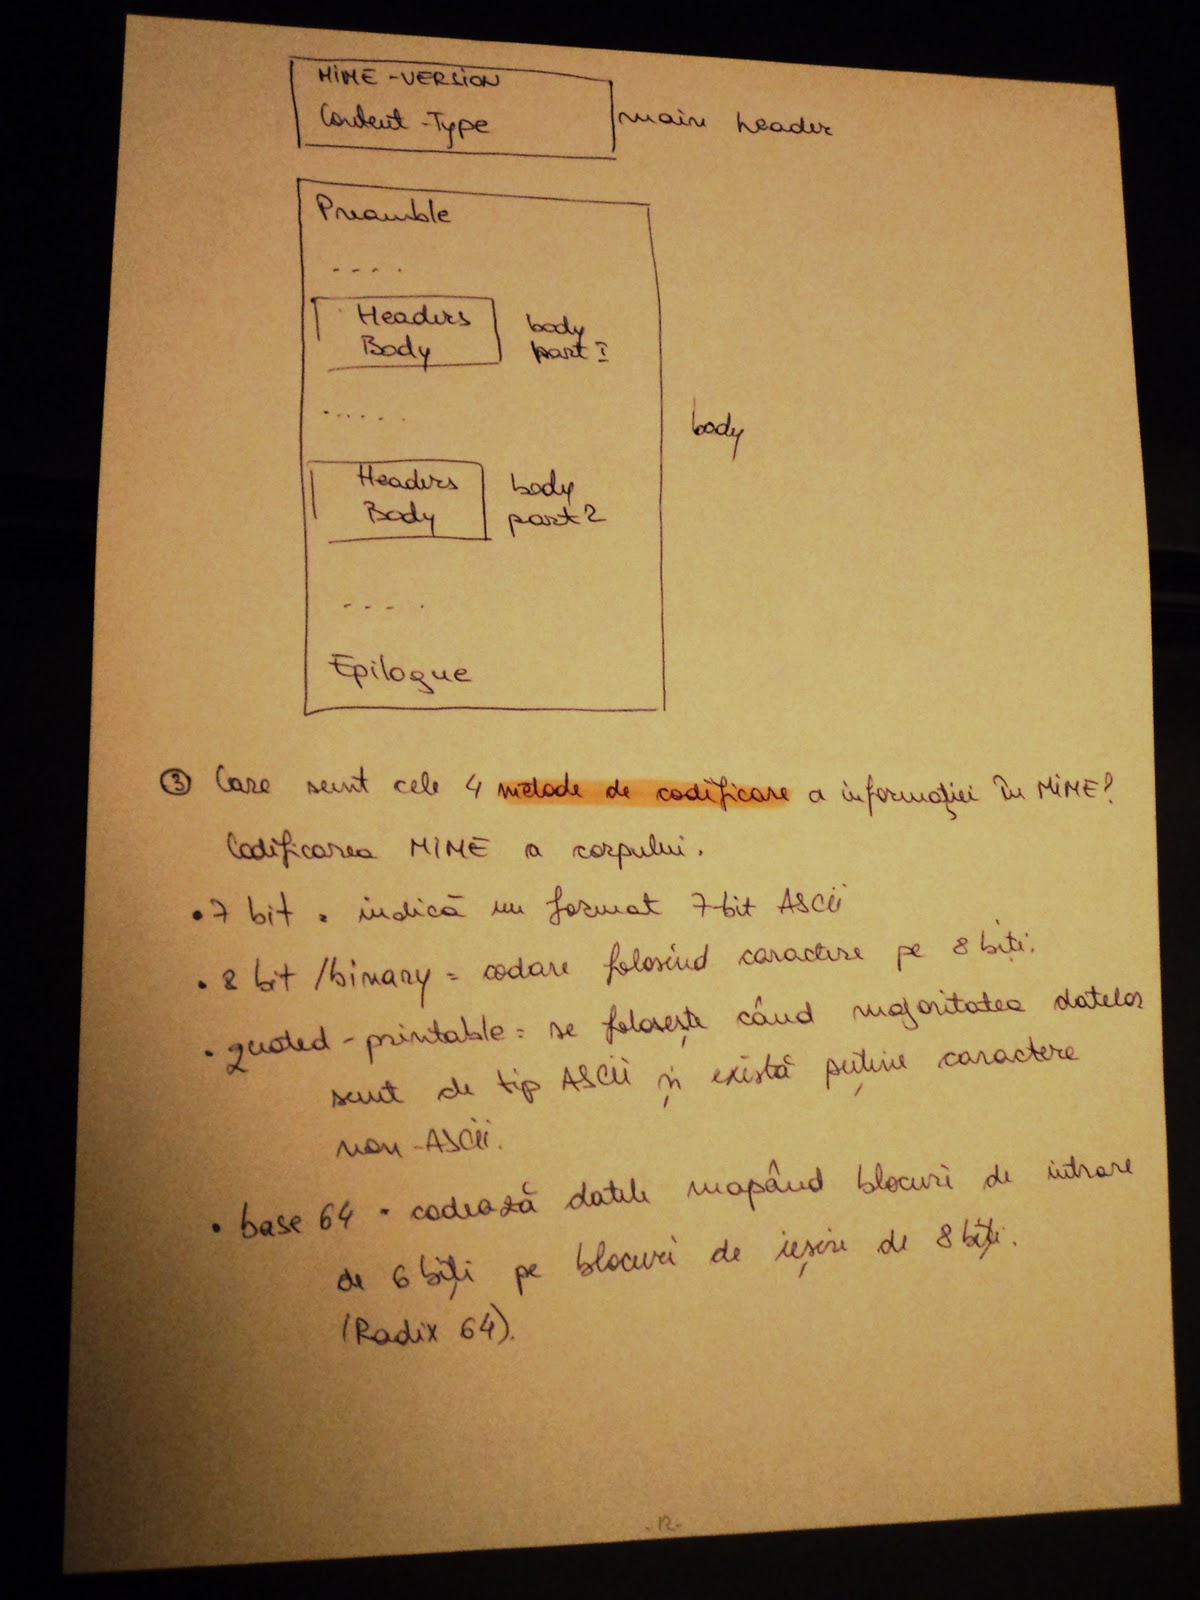 MIME-VERSION
Content-Type
main header
Preamble
....
Headers
Body
body
part I
......
body
Headers
Body
body
part 2
....
Epilogue
③ Care sunt cele 4 metode de codificare a informației în MIME?
Codificarea MIME a corpului.
• 7 bit = indică un format 7-bit ASCII
• 8 bit /binary = codare folosind caractere pe 8 biți.
• quoted-printable = se folosește când majoritatea datelor
sunt de tip ASCII și există puține caractere
non-ASCII.
• base 64 = codează datele mapând blocuri de intrare
de 6 biți pe blocuri de ieșire de 8 biți.
(Radix 64).
-12-